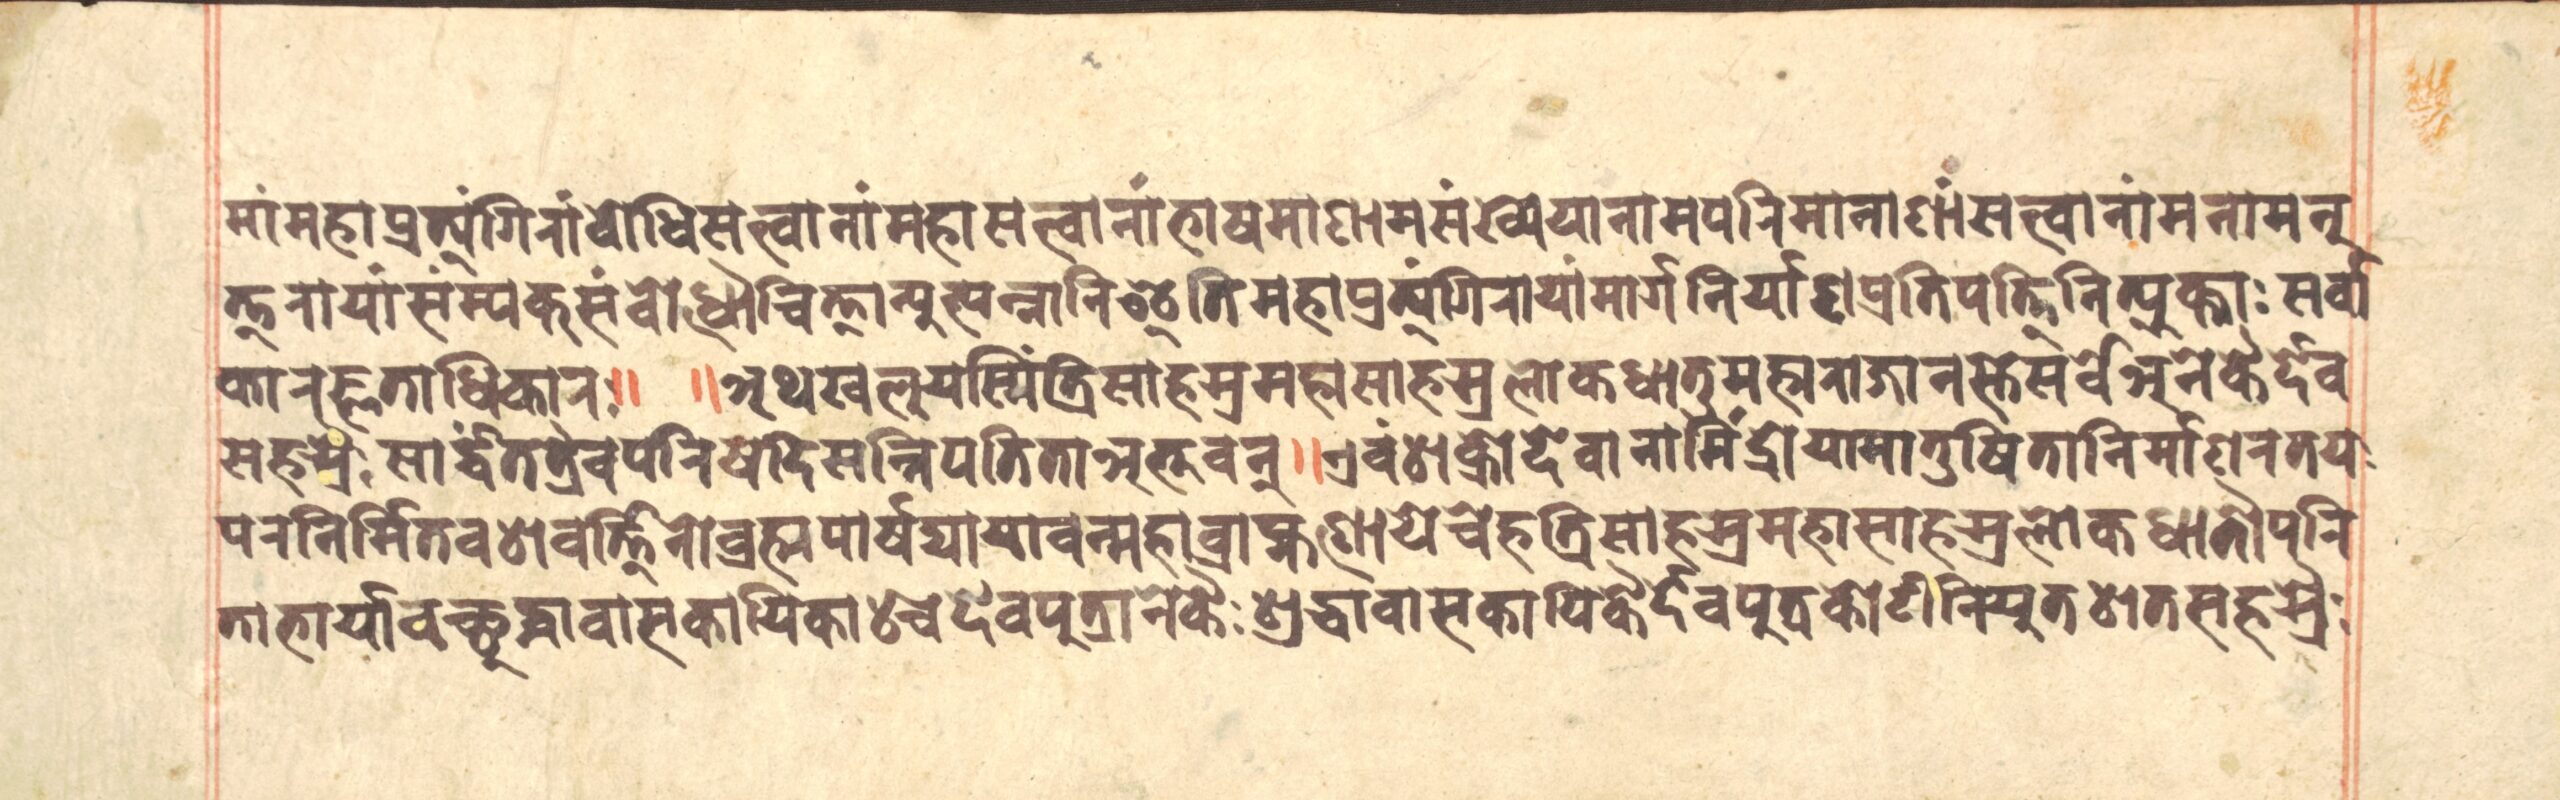 मांमहाप्रत्यंगिरांवोधिसत्त्वानांमहासत्त्वानांभाषमाणामसंख्येयानामपरिमानाणांसत्त्वानांमनामनु
त्तरायांसंम्यक्संवोधौचित्तान्युत्पन्नानिश्चेतिमहाप्रत्यंगिरायांमार्गनिर्याणप्रतिपत्तिनित्युक्ताः सर्वा
कारज्ञताधिकारः॥ ॥अथखलुयस्मिंत्रिसाहस्रमहासाहस्रलोकधातुमहाराजानस्तेसर्वेअनेकैर्देव
सहस्रैः सार्द्धंतत्रैवपरिषदिसन्निपतिताअभूवन्॥एवंशक्रोदेवानामिंद्रोयामातुषितानिर्माणरतयः
परनिर्मितवशवर्त्तिनोव्रह्मपार्षद्यायावन्महाव्राह्मणायेचेहत्रिसाहस्रमहासाहस्रलोकधातौपरि
ताभार्यावच्छुद्धावासकायिकाश्चदेवपुत्रानेकैः शुद्धावासकायिकैर्देवपुत्रकोटीनियुतशतसहस्रैः